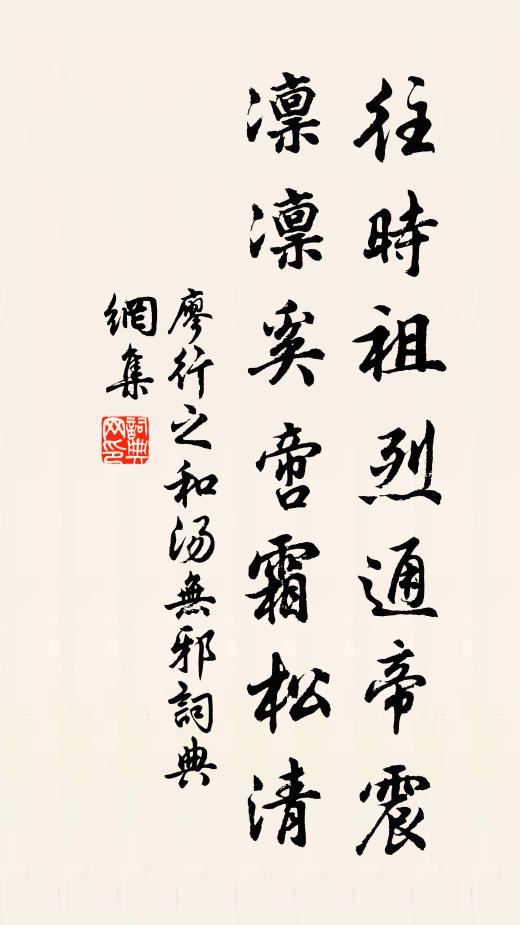 往時祖烈通帝震
凜凜奚啻霜松清
廖行之和湯無邪詞典
網集
詞典網印